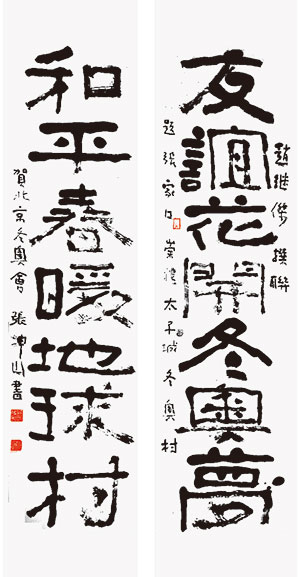 趙
撰聯
友誼花開冬奧夢
題張家口崇禮太子城冬奧村
和平春暖地球村
賀北京冬奧會 張坤山書